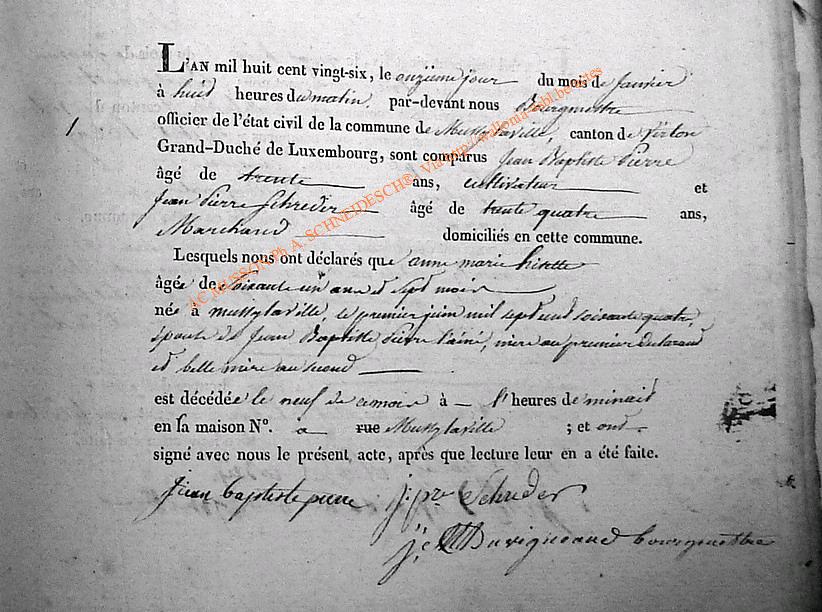 L'AN mil huit cent vingt-six, le onzième jour du mois de Janvier
à huid heures du matin. par-devant nous Bourgmestre
officier de l'état civil de la commune de Mussylaville, canton de Virton
Grand-Duché de Luxembourg, sont comparus Jean Baptiste Pierre
âgé de trente ans, cultivateur et
Jean Pierre Schreder âgé de trente quatre ans,
Marchand domiciliés en cette commune.
Lesquels nous ont déclarés que anne marie
âgée de soixante un ans et sept mois
née à mussylaville, le premier juin mil sept cent soixante quatre,
épouse de Jean Baptiste Pierre l'ainé, mere au premier declarand
et belle mere au second
est décédée le neuf de ce mois à heures de minuit
en sa maison N°. a rue Mussylaville ; et ont
signé avec nous le présent acte, après que lecture leur en a été faite.
Jean baptiste pierre j: pre Schreder
bourgmestre
1
AC MUSSON Ph A. SCHNEIDESCH® Via http://wallonia-gbl.be/actes